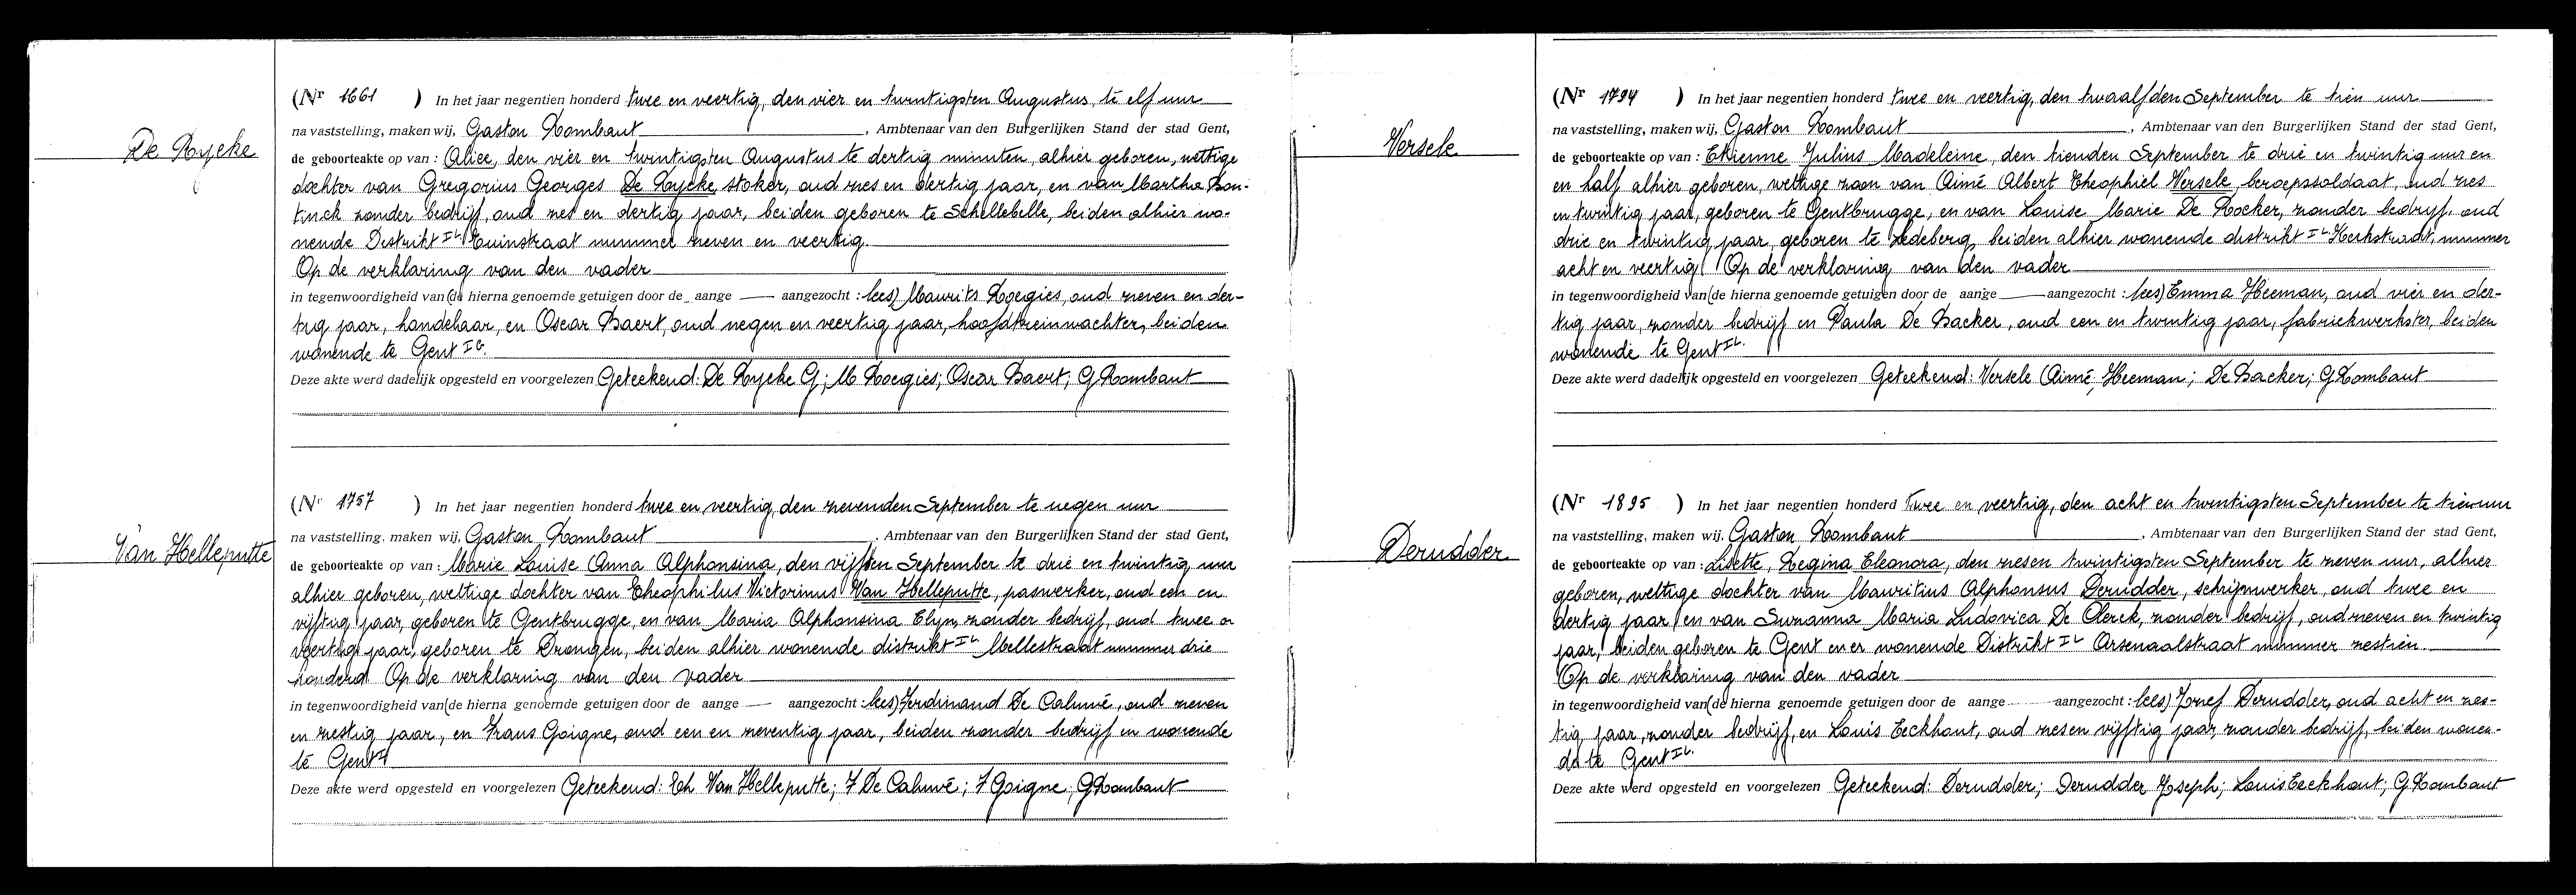 De Rycke
(Nr 1661 ) In het jaar negentien honderd twee en veertig, den vier en twintigsten Augustus, te elf uur
na vaststelling, maken wij, Gaston Rombaut, Ambtenaar van den Burgerlijken Stand der stad Gent,
de geboorteakte op van : Alice, den vier en twintigsten Augustus te dertig minuten, alhier geboren, wettige
dochter van Gregorius Georges De Rycke, stoker, oud zes en dertig jaar, en van Martha Bon-
tinck zonder bedrijf, oud zes en dertig jaar, beiden geboren te Schellebelle, beiden alhier wo-
nende Distrikt IL Tuinstraat nummer zeven en veertig.
Op de verklaring van den vader
in tegenwoordigheid van (de hierna genoemde getuigen door de aange — aangezocht : lees) Maurits Roegies, oud zeven en der-
tig jaar, handelaar, en Oscar Baert, oud negen en veertig jaar, hoofdtreinwachter, beiden
wonende te Gent
Deze akte werd dadelijk opgesteld en voorgelezen Geteekend: De Rycke G; M Roegies; Oscar Baert; G Rombaut
Van Helleputte
(Nr 1757 ) In het jaar negentien honderd twee en veertig, den zevenden September te negen uur
na vaststelling. maken wij, Gaston Rombaut, Ambtenaar van den Burgerlijken Stand der stad Gent,
de geboorteakte op van : Marie Louise Anna Alphonsina, den vijfden September te drie en twintig uur
alhier geboren, wettige dochter van Theophilus Victorinus Van Helleputte, paswerker, oud een en
vijftig jaar, geboren te Gentbrugge, en van Maria Alphonsina Elyn, zonder bedrijf, oud twee en
veertig jaar, geboren te Drongen, beiden alhier wonende distrikt IL Mellestraat nummer drie
honderd Op de verklaring van den vader
in tegenwoordigheid van (de hierna genoemde getuigen door de aange — aangezocht : lees) Ferdinand De Caluwé, oud zeven
en zestig jaar, en Frans Goigne, oud een en zeventig jaar, beiden zonder bedrijf en wonende
te Gent
Deze akte werd opgesteld en voorgelezen Geteekend: Th Van Helleputte; F De Caluwé; F Goigne; G Rombaut
Versele
(Nr 1794 ) In het jaar negentien honderd twee en veertig, den twaalfden September te tien uur
na vaststelling, maken wij, Gaston Rombaut, Ambtenaar van den Burgerlijken Stand der stad Gent,
de geboorteakte op van : Etienne Julius Madeleine, den tienden September te drie en twintig uur en
en half alhier geboren, wettige zoon van Aimé Albert Theophiel Versele, beroepssoldaat, oud zes
en twintig jaar, geboren te Gentbrugge, en van Louise Marie De Rocker, zonder bedrijf, oud
drie en twintig jaar, geboren te Ledeberg, beiden alhier wonende distrikt IL Kerkstraat, nummer
acht en veertig Op de verklaring van den vader
in tegenwoordigheid van (de hierna genoemde getuigen door de aange — aangezocht : lees) Emma Heeman, oud vier en der-
tig jaar, zonder bedrijf en Paula De Backer, oud een en twintig jaar, fabriekwerkster, beiden
wonende te Gent IL.
Deze akte werd dadelijk opgesteld en voorgelezen Geteekend: Versele Aimé; Heeman; De Backer; G Rombaut
Derudder
(Nr 1895 ) In het jaar negentien honderd twee en veertig, den acht en twintigsten September te tien uur
na vaststelling, maken wij, Gaston Rombaut, Ambtenaar van den Burgerlijken Stand der stad Gent,
de geboorteakte op van : Lisette, Regina Eleonora, den zesen twintigsten September te zeven uur, alhier
geboren, wettige dochter van Mauritius Alphonsus Derudder, schrijnwerker, oud twee en
dertig jaar en van Suzanna Maria Ludovica De Clerck, zonder bedrijf, oud zeven en twintig
jaar, beiden geboren te Gent en er wonende Distrikt IL Arsenaalstraat nummer zestien.
Op de verklaring van den vader
in tegenwoordigheid van (de hierna genoemde getuigen door de aange — aangezocht : lees) Jozef Derudder, oud acht en zes-
tig jaar, zonder bedrijf, en Louis Eeckhout, oud zesen vijftig jaar, zonder bedrijf, beiden wonen-
de te Gent IL.
Deze akte werd opgesteld en voorgelezen Geteekend: Derudder; Derudder Joseph; Louis Eeckhout; G Rombaut